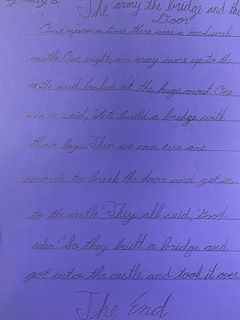 The army the bridge and the
Door
Once upon a time there was a medieval
castle. One night, an army came up to the
castle and looked at the huge moat. One
man said, "Let's build a bridge with
those logs. Then we can use are
swords to break the door and get in
to the castle." They all said, "Good
idea!" So they built a bridge and
got into the castle and took it over.
The End